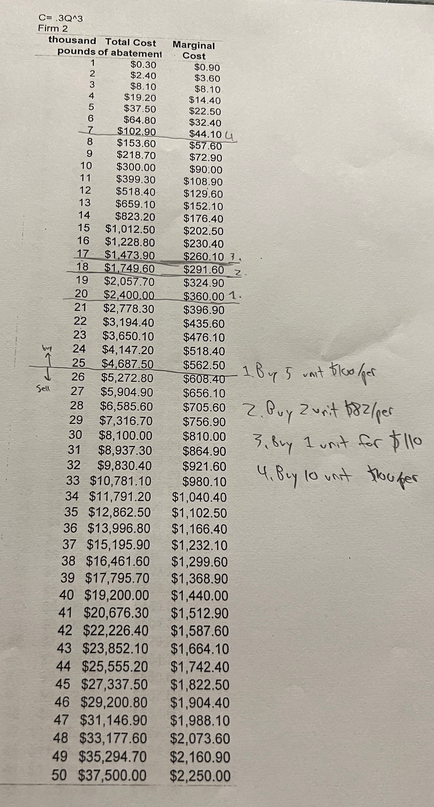 C= .3Q^3
Firm 2
thousand Total Cost Marginal
pounds of abatement Cost
1 $0.30 $0.90
2 $2.40 $3.60
3 $8.10 $8.10
4 $19.20 $14.40
5 $37.50 $22.50
6 $64.80 $32.40
7 $102.90 $44.10 4
8 $153.60 $57.60
9 $218.70 $72.90
10 $300.00 $90.00
11 $399.30 $108.90
12 $518.40 $129.60
13 $659.10 $152.10
14 $823.20 $176.40
15 $1,012.50 $202.50
16 $1,228.80 $230.40
17 $1,473.90 $260.10 3.
18 $1,749.60 $291.60 2.
19 $2,057.70 $324.90
20 $2,400.00 $360.00 1.
21 $2,778.30 $396.90
22 $3,194.40 $435.60
23 $3,650.10 $476.10
24 $4,147.20 $518.40
buy
25 $4,687.50 $562.50
26 $5,272.80 $608.40
Sell
27 $5,904.90 $656.10
28 $6,585.60 $705.60
29 $7,316.70 $756.90
30 $8,100.00 $810.00
31 $8,937.30 $864.90
32 $9,830.40 $921.60
33 $10,781.10 $980.10
34 $11,791.20 $1,040.40
35 $12,862.50 $1,102.50
36 $13,996.80 $1,166.40
37 $15,195.90 $1,232.10
38 $16,461.60 $1,299.60
39 $17,795.70 $1,368.90
40 $19,200.00 $1,440.00
41 $20,676.30 $1,512.90
42 $22,226.40 $1,587.60
43 $23,852.10 $1,664.10
44 $25,555.20 $1,742.40
45 $27,337.50 $1,822.50
46 $29,200.80 $1,904.40
47 $31,146.90 $1,988.10
48 $33,177.60 $2,073.60
49 $35,294.70 $2,160.90
50 $37,500.00 $2,250.00
1. Buy 5 unit $100/per
2. Buy 2 unit $82/per
3. Buy 1 unit for $110
4. Buy 10 unit $100/per